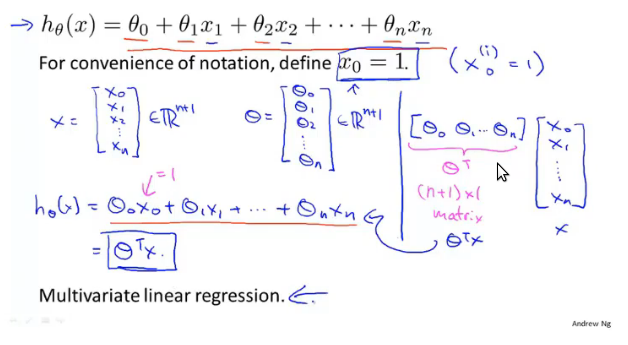 → hθ(x) = θ0 + θ1x1 + θ2x2 + ··· + θnxn
For convenience of notation, define x0 = 1. (x0^(i) = 1)
x = [x0 x1 x2 ⋮ xn] ∈ ℝ^(n+1) θ = [θ0 θ1 θ2 ⋮ θn] ∈ ℝ^(n+1)
[θ0 θ1 ··· θn] [x0 x1 ⋮ xn]
θ^T
(n+1) x 1
matrix
x
θ^T x
= 1
hθ(x) = θ0x0 + θ1x1 + ··· + θnxn
= θ^T x.
Multivariate linear regression. ←
Andrew Ng